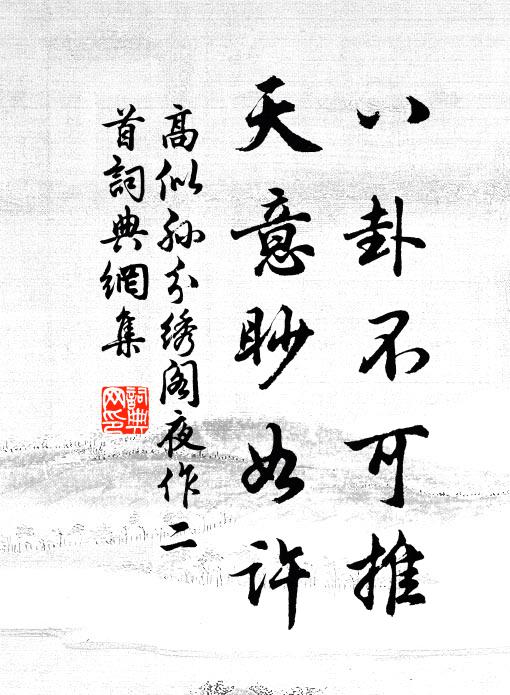 八卦不可推
天意眇如许
高似孙分绣阁夜作二
首词典網集
詞典
网印